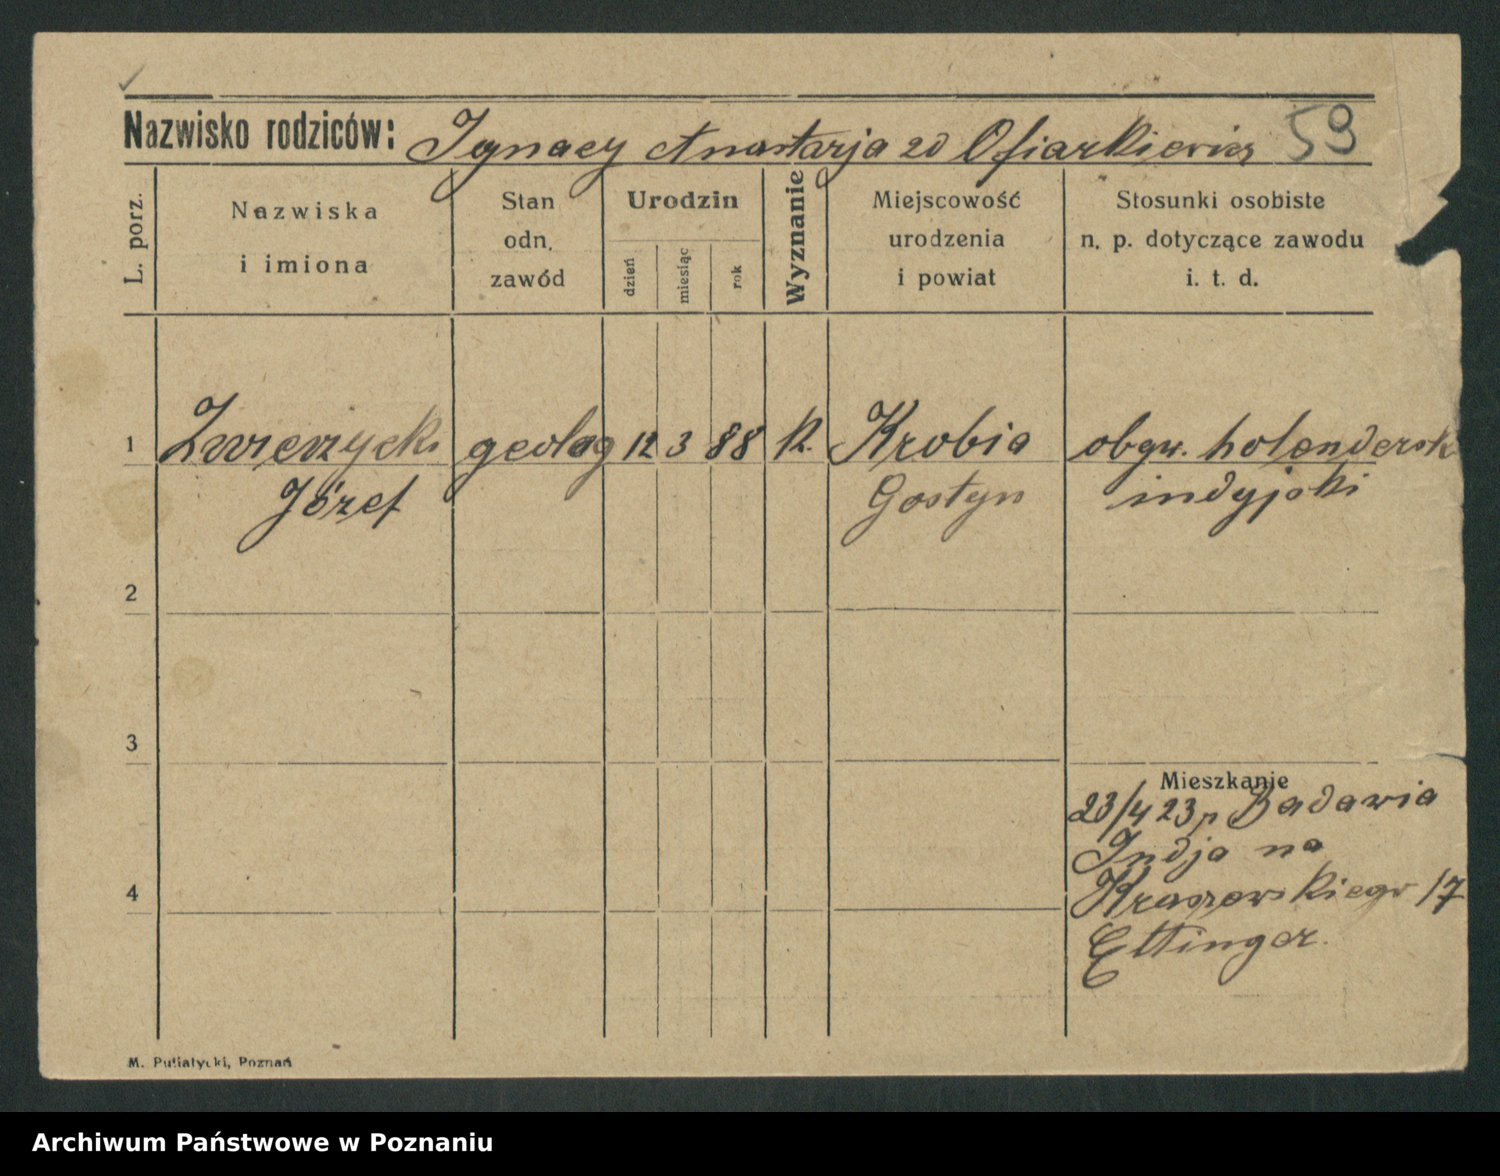 Nazwisko rodziców: Ignacy Anastazja zd Ofiarkiewicz 59
L. porz.
Nazwiska
i imiona
Stan
odn.
zawód
Urodzin
dzień
miesiąc
rok
Wyznanie
Miejscowość
urodzenia
i powiat
Stosunki osobiste
n. p. dotyczące zawodu
i. t. d.
1 Zwierzycki geolog 12 3 88 k. Krobia obyw. holendersk
Józef Gostyn indyjski
2
3
Mieszkanie
23/4 23 p Badawia
Indja na
4 Kraszewskiego 17
Ettinger.
M. Putiatycki, Poznań
Archiwum Państwowe w Poznaniu